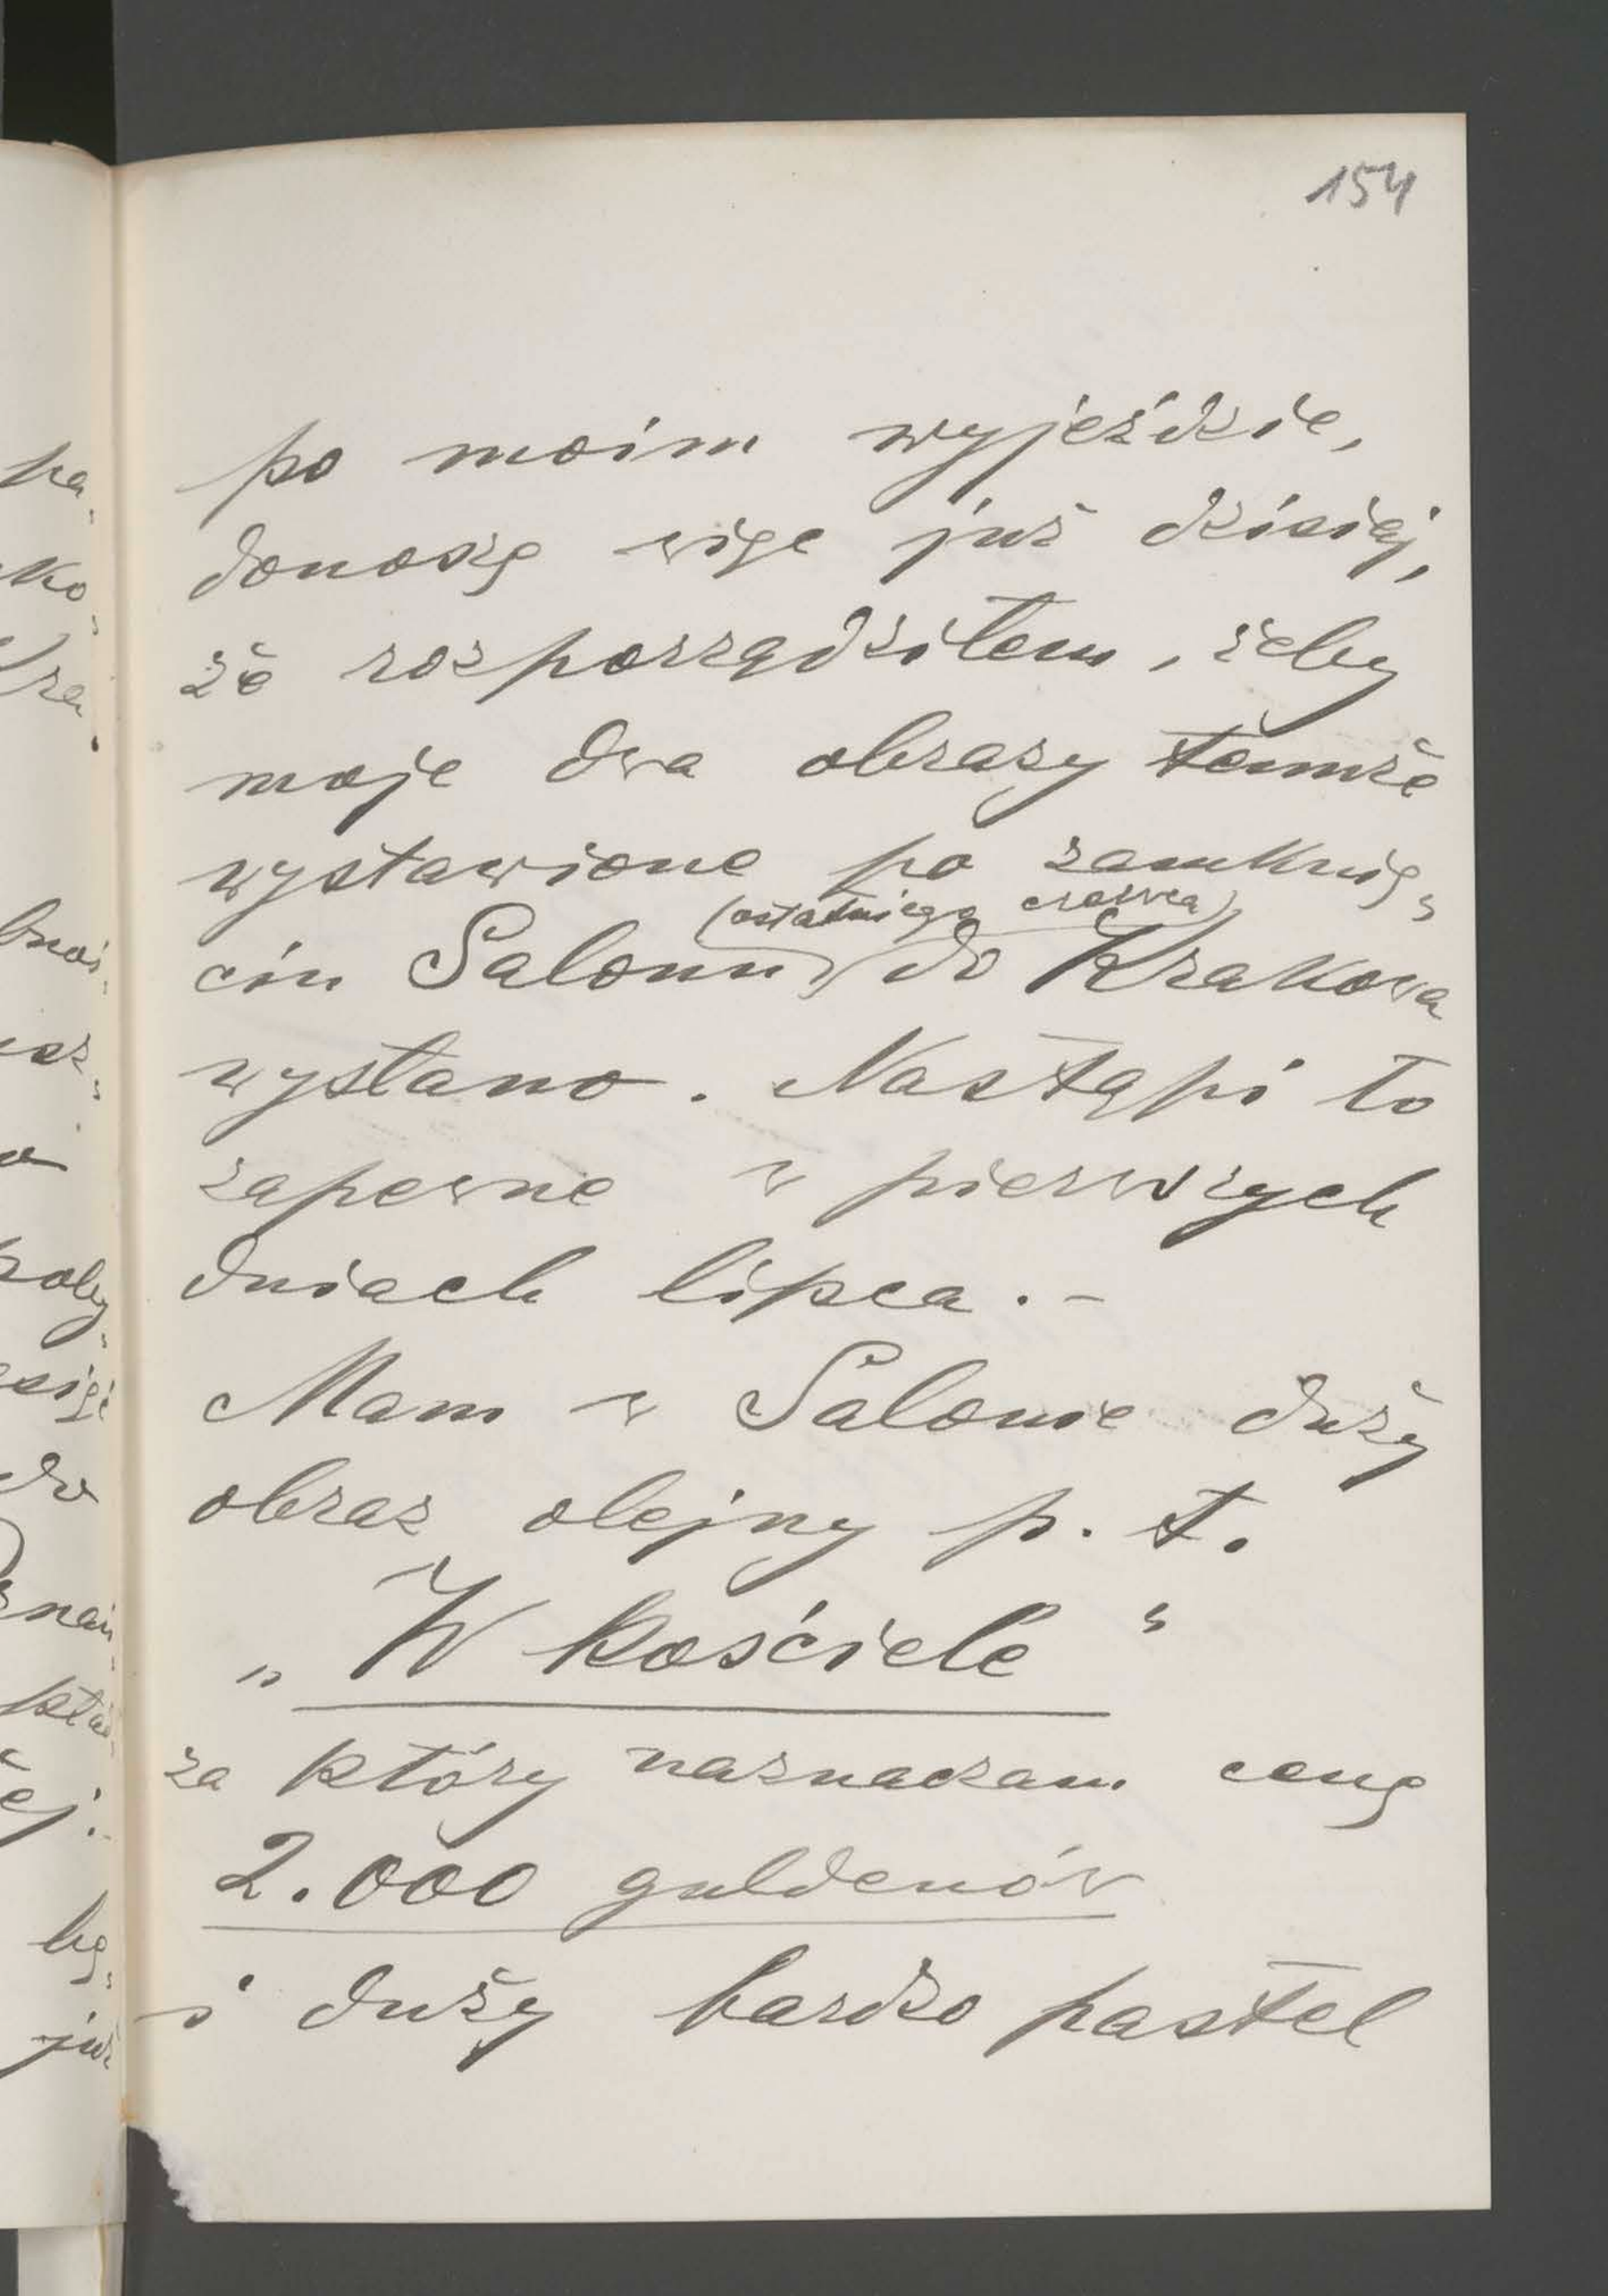 154
po moim wyjeździe,
donoszę więc już dzisiaj,
że rozporządziłem, żeby
moje dwa obrazy temże
wystawione po zamknię„
(ostatniego czerwca)
ciu Salonu do Krakowa
wysłano. Nastąpi to
zapewne w pierwszych
dniach lipca.-
Mam w Salonie duży
obraz olejny p. t.
„W kościele“
za który naznaczam cenę
2.000 guldenów
i duży bardzo pastel